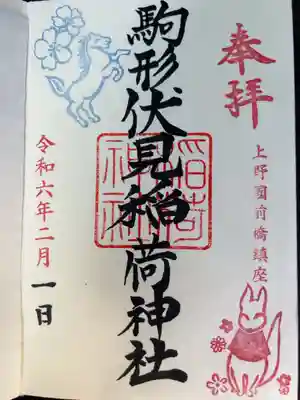 奉拝
上野国前橋鎮座
駒形伏見稲荷神社
稲荷
神社
令和六年二月一日